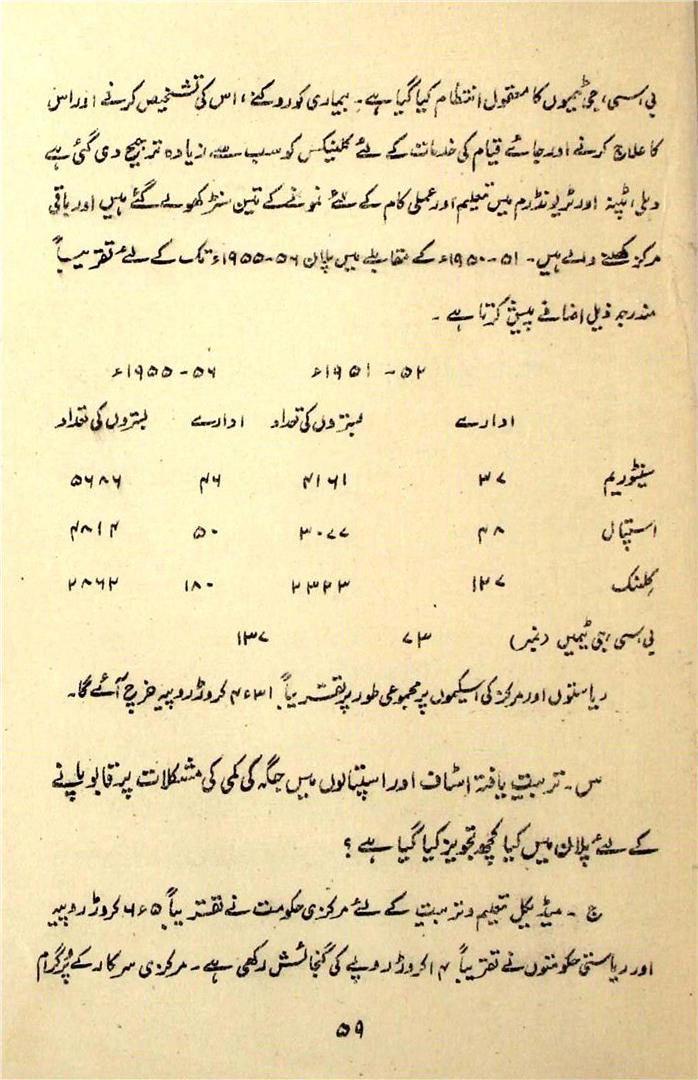 بی،سی،جی ٹیموں کا معقول انتظام کیا گیا ہے۔ بیماری کو روکنے، اس کی تشخیص کرنے اور اس
کا علاج کرنے اور جائے قیام کی خدمات کے لئے کلینکس کو سب سے زیادہ ترجیح دی گئی ہے
دہلی، پٹنہ اور ٹریونڈرم میں تعلیم اور عملی کام کے لئے نمونے کے تین سنٹر کھولے گئے ہیں اور باقی
مرکز کھلنے والے ہیں۔ ۵۱-۱۹۵۰ء کے مقابلے میں پلان ۵۶-۱۹۵۵ء تک کے لئے تقریباً
مندرجہ ذیل اضافے پیش کرتا ہے۔
۵۲-۱۹۵۱ء ۵۶-۱۹۵۵ء
ادارے بستروں کی تعداد ادارے بستروں کی تعداد
سینٹوریم ۳۷ ۴۱۶۱ ۴۶ ۵۶۸۶
اسپتال ۴۸ ۳۰۷۷ ۵۰ ۴۸۱۴
کلینک ۱۲۷ ۲۳۲۳ ۱۸۰ ۲۸۶۲
بی،سی،جی ٹیمیں (نمبر) ۷۳ ۱۳۷
ریاستوں اور مرکز کی اسکیموں پر مجموعی طور پر تقریباً ۴ء۳۱ کروڑ روپیہ خرچ آئے گا۔
س۔ تربیت یافتہ اسٹاف اور اسپتالوں میں جگہ کی کمی کی مشکلات پر قابو پانے
کے لئے پلان میں کیا کچھ تجویز کیا گیا ہے؟
ج۔ میڈیکل تعلیم و تربیت کے لئے مرکزی حکومت نے تقریباً ۶ء۶۵ کروڑ روپیہ
اور ریاستی حکومتوں نے تقریباً ۱۴ کروڑ روپے کی گنجائش رکھی ہے۔ مرکزی سرکار کے پروگرام
۵۹